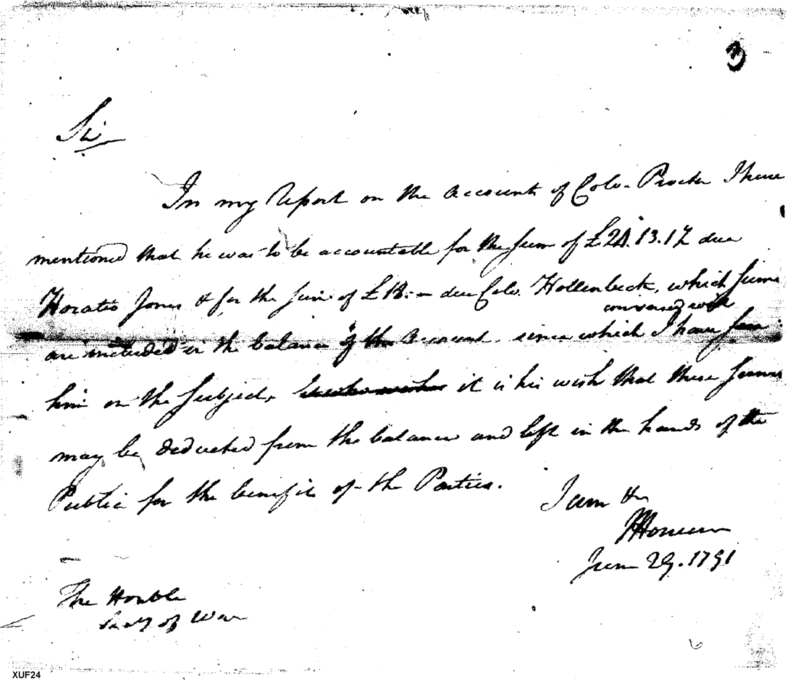 3
Sir
In my report on the Account of Colo. Procter I have
mentioned that he was to be accountable for the sum of £24.13.1½ due
Horatio Jones & for the sum of £ due Colo. Hollenback, which sums
conversed with
are included in the balance of the Account. since which I have
him on the subject, it is his wish that these sums
may be deducted from the balance and left in the hands of the
Public for the benefit of the Parties.
I am &c
June 29. 1791
The Honble
Secy of War
XUF24